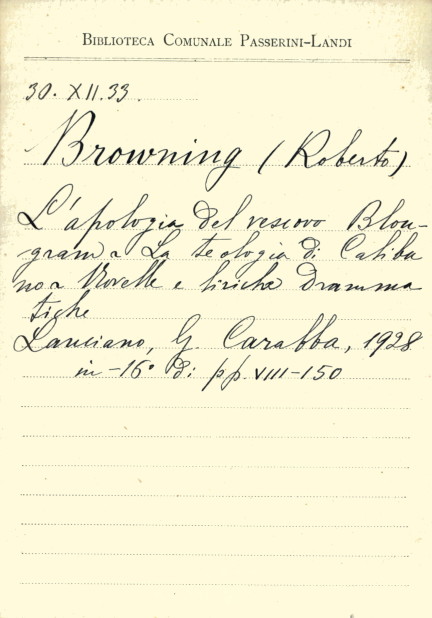 BIBLIOTECA COMUNALE PASSERINI-LANDI
30. XII. 33.
Browning (Roberto)
L'apologia del vescovo Blou-
gram - La teologia di Caliba
no - Novelle e liriche dramma
tiche
Lanciano, G. Carabba, 1928
in-16° di pp. VIII-150